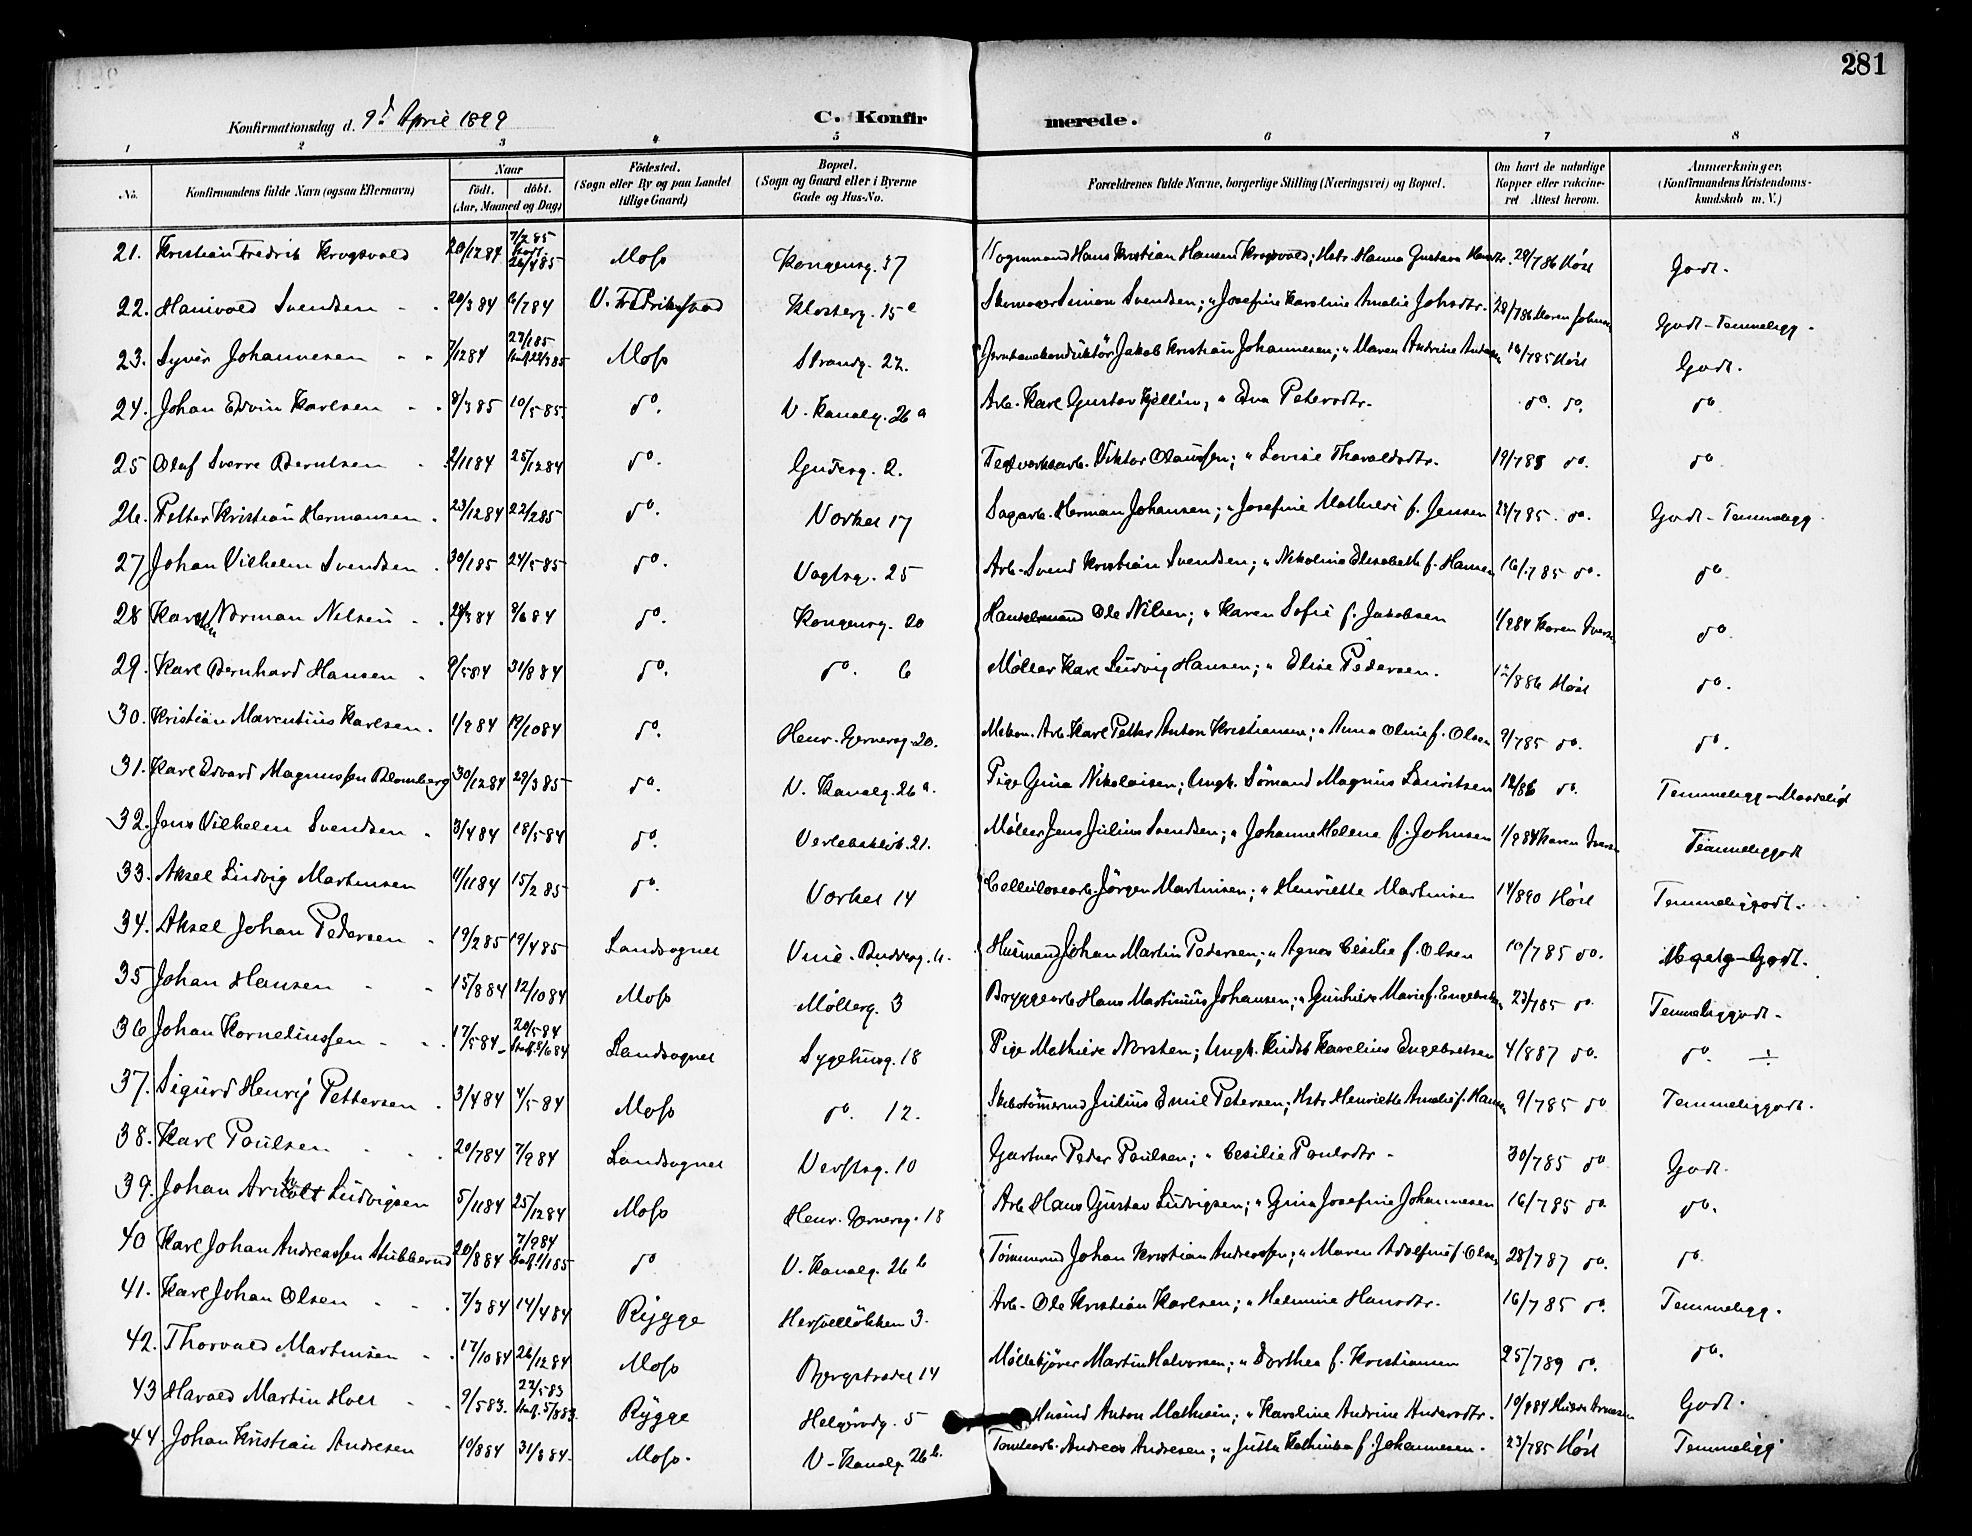 281
Konfirmationsdag d. 9d April 1899
C. Konfirmerede.
1 2 3 4 5 6 7 8
No. Konfirmandens fulde Navn (ogsaa Efternavn) Naar födt. döbt. (Aar, Maaned og Dag) Födested. (Sogn eller By og paa Landet tillige Gaard) Bopæl. (Sogn og Gaard eller i Byerne Gade og Hus-No. Forældrenes fulde Navne, borgerlige Stilling (Næringsvei) og Bopæl. Om havt de naturlige Kopper eller vakcineret Attest herom. Anmærkninger, (Konfirmandens Kristendomskundskab m. V.)
21. Kristian Fredrik Krogsvold 20/1284 7/285 Stadf. 26/485 Moss Kongensg. 37 Vognmand Hans Kristian Hansen Krogsvold; Hstr. Hanna Gustava 29/786 Höst Godt.
22. Hanivald Svendsen 20/384 6/784 V. Fredrikstad Klosterg. 15a Simon Svendsen; " Josefine Karoline Amalie Johsdtr. 28/786 Karen Godt-Temmeligg.
23. Syver Johannesen 7/1284 27/185 Moss Strandg. 22. Jernbanekonduktör Jakob Kristian Johannesen; " Maren Andrine 16/785 Höst Godt.
24. Johan Edvin Karlsen 8/385 10/585 do. V. Kanalg. 26a Arb. Karl Gustav Kjellin, " Eva Petersdtr. do. do. do.
25 Olaf Sverre Berntsen 2/1184 25/1284 do. Gudesg. 2. Viktor Olaussen; " Lovise Tharaldsdtr. 19/785 do. do.
26. Petter Kristian Hermansen 23/1284 22/285 do. Vorket 17 Sagarb. Herman Johansen; " Josefine Mathilde f. Jensen 23/785. do. Godt-Temmeligg.
27 Johan Vilhelm Svendsen 30/185 24/585 do. Vogtsg. 25 Arb. Svend Kristian Svendsen; " Nikoline Elisabeth f. Hansen 16/785 do. do
28 Karsten Norman Nilsen 29/384 8/684 do. Kongensg. 20 Handelsmand Ole Nilsen; " Karen Sofie f. Jakobsen 1/984 Karen do.
29. Karl Bernhard Hansen 9/584 31/884 do. do. 6 Møller Karl Ludvig Hansen; " Elise Pedersen. 12/886 Höst do.
30. Kristian Marentius Karlsen. 1/984 19/1084 do. Henr. Gernersg. 20. Karl Petter Anton Kristiansen; " Anna Oline f. Olsen 9/785 do. do.
31. Karl Edvard Magnussen Blomberg 30/1284 29/385 do. V. Kanalg. 26a. Pige Gina Nikolaisen; Ungk. Sömand Magnus Lauritsen do. Temmeligg-Maadeligt
32. Jens Vilhelm Svendsen 3/484 18/584 do. Verlebakken 21. Møller Jens Julius Svendsen; " Johanne Helene f. Johnsen 1/984 Karen Temmeliggodt
33. Aksel Ludvig Martinsen 4/1184 15/285 do. Vorket 14 Cellulosearb. Jörgen Martinsen; " Henriette Martinsen 14/890 Höst Temmeliggodt.
34. Aksel Johan Pedersen 19/285 19/485 Landsognet Husmand Johan Martin Pedersen; " Agnes Cesilie f. Olsen 10/785 do. Megetg-Godt.
35 Johan Hansen 15/884 12/1084 Moss Møllerg. 3 Bryggearb. Hans Martinius Johansen; " Gunhild Marie f. 23/785 do. Temmeliggodt.
36 Johan Korneliussen 17/584 20/584 Stadf. 8/684 Landsognet Sygehusg. 18 Pige Mathilde Norsten; Ungk. Karelius Engebretsen 4/887 do. do. ÷
37. Sigurd Henrij Pettersen 3/484 4/584 Moss do. 12. Skibstömmermd Julius Emil Petersen; Hstr. Henriette Amalie f. 9/785 do Temmeliggodt.
38. Karl Poulsen 20/784 7/984 Landsognet Verftsg. 10 Gartner Peder Poulsen; " Cesilie Paulsdtr. 30/785 do Godt.
39. Johan Arnholt Ludvigsen 5/1184 25/1284 Moss Henr. Gernersg. 18 Arb. Hans Gustav Ludvigsen; " Gina Josefine Johannesen 16/785 do. do.
40 Karl Johan Andreassen Stubberud 20/884 7/984 Stadf. 1/185 do V. Kanalg. 26b Tömmermd Johan Kristian Andreassen; " Maren Adolfine f. Olsen 28/787 do. do.
41. Karl Johan Olsen 7/384 14/484 Rygge 3. Arb. Ole Kristian Karlsen; " Helmine Hansdtr. 16/785 do. Temmeligg.
42. Thorvald Martinsen 17/1084 26/1284 Moss Bergstredet 14 Møllekjörer Martin Halvorsen; " Dorthea f. Kristiansen 25/789 do. do.
43 Harald Martin Holt 9/583. 27/583 Stadf. 5/883. Rygge Helgerödg. 5 Anton Mathisen; " Karoline Andrine Andersdtr. 10/884 Godt.
44. Johan Kristian Andresen 10/884 31/884. Moss. V. Kanalg. 26b. Tomtearb. Andreas Andresen; " Jutta Kathinka f. Johannesen. 23/785 Höst Temmeligg